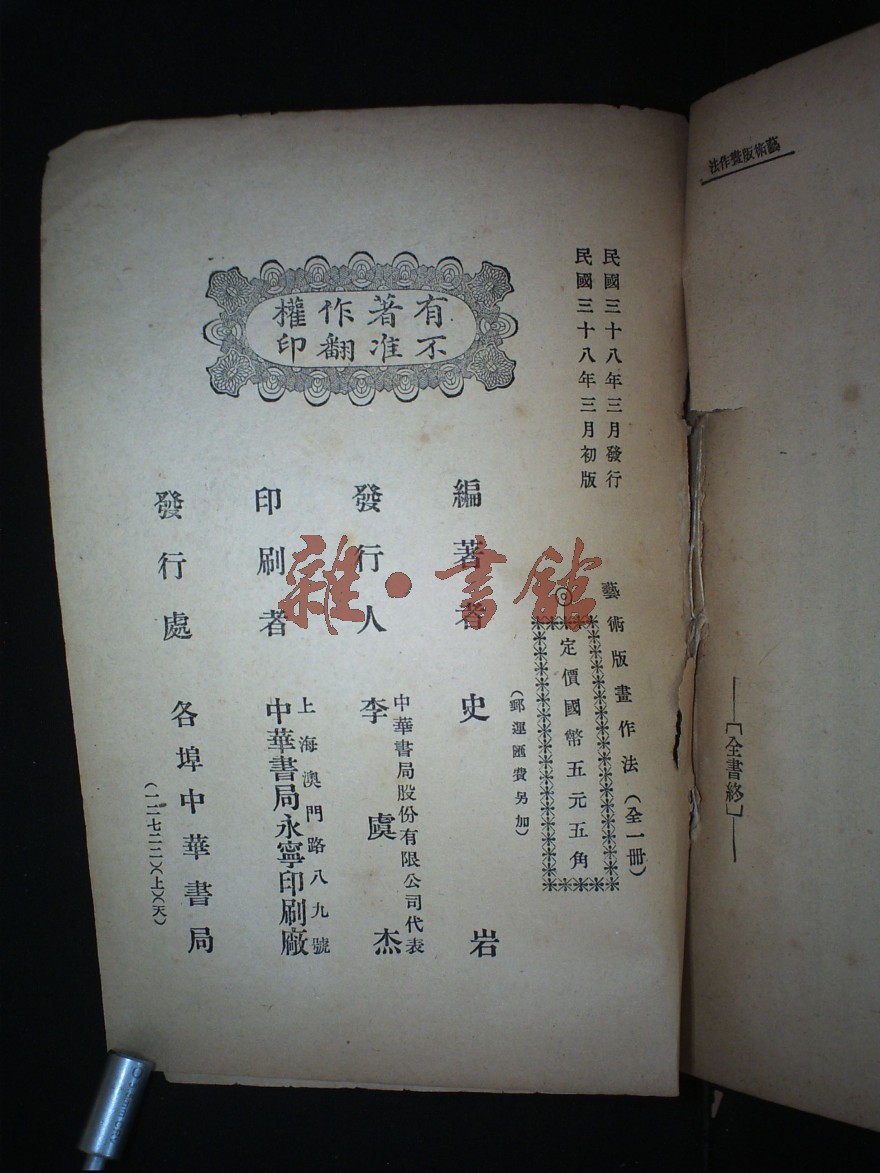 藝術版畫作法
——[全書終]——
民國三十八年三月發行
民國三十八年三月初版
藝術版畫作法(全一冊)
◎定價國幣五元五角
(郵運匯費另加)
有著作權
不准翻印
編著者 史岩
發行人 中華書局股份有限公司代表
李虞杰
印刷者 上海澳門路八九號
中華書局永寧印刷廠
發行處 各埠中華書局
(一二七二二)(上)(天)
雜·書館